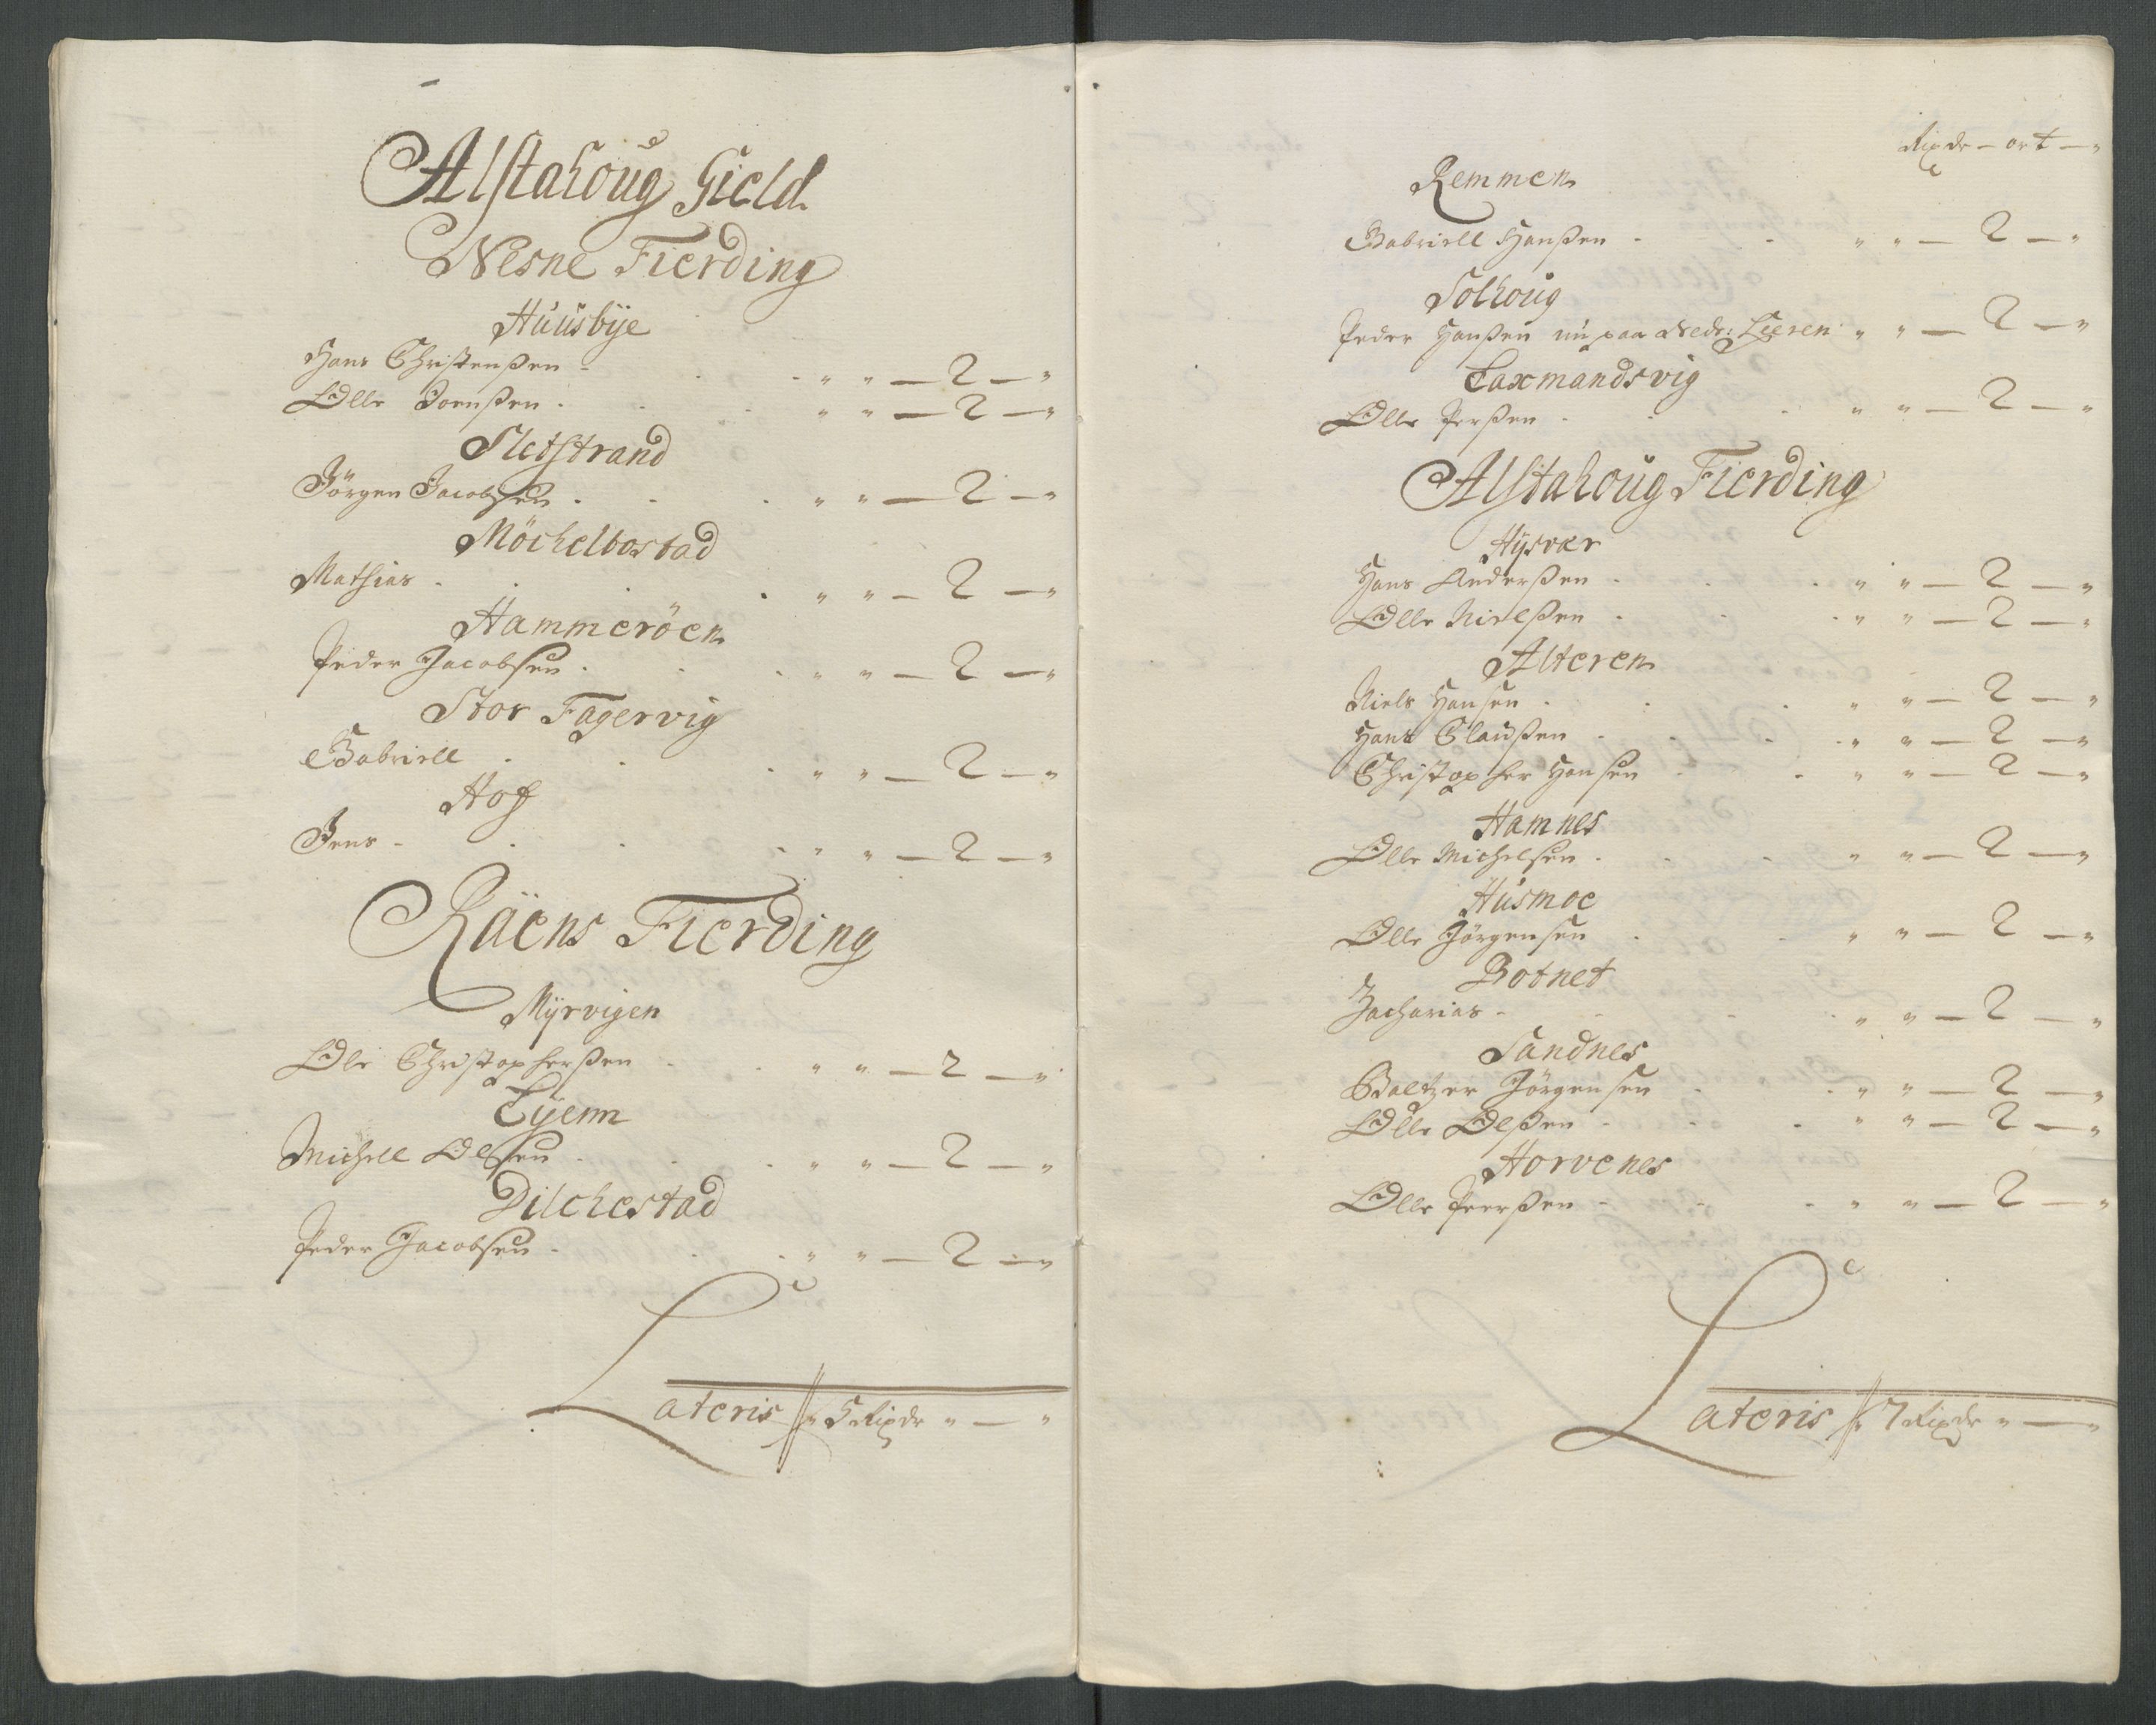 Alstahoug Gield
Nesne Fierding
Huusbÿe
Hans Christenßen - - " " — 2 — "
Olle Joenßen - - " " — 2 — "
Sletstrand
Jörgen Jacobsen - - " " — 2 — "
Möchelbostad
Mathias - - " " — 2 — "
Hammeröen
Peder Jacobsen - - " " — 2 — "
Stor Fagervig
Gabriell - - " " — 2 — "
Hof
Jens - - " " — 2 — "
Räens Fierding
Mÿrvigen
Ole Christopherßen - - " " — 2 — "
Michell Olsen - - " " — 2 — "
Dilchestad
Peder Jacobsen - - " " — 2 — "
Lateris // " 5 Rixdr " — "
Rixdr — ort — "
Remmen
Gabriell Hanßen - - " " — 2 — "
Solhoug
Peder Hanßen nu paa Nedr: Leeren " " — 2 — "
Laxmandsvig
Olle Perßen - - " " — 2 — "
Alstahoug Fierding
Hÿsvær
Hans Anderßen - - " " — 2 — "
Olle Nielßen - - " " — 2 — "
Alteren
Niels Hansen - - " " — 2 — "
Hans Claußen - - " " — 2 — "
Christopher Hansen - - " " — 2 — "
Hamnes
Olle Michelsen - - " " — 2 — "
Husmoe
Olle Jörgensen - - " " — 2 — "
Botnet
Zacharias - - " " — 2 — "
Sandnes
Baltzer Jörgensen - - " " — 2 — "
Olle Olßen - - " " — 2 — "
Horvenes
Olle Peerßen - - " " — 2 — "
Lateris // " 7 Rixdr " — "